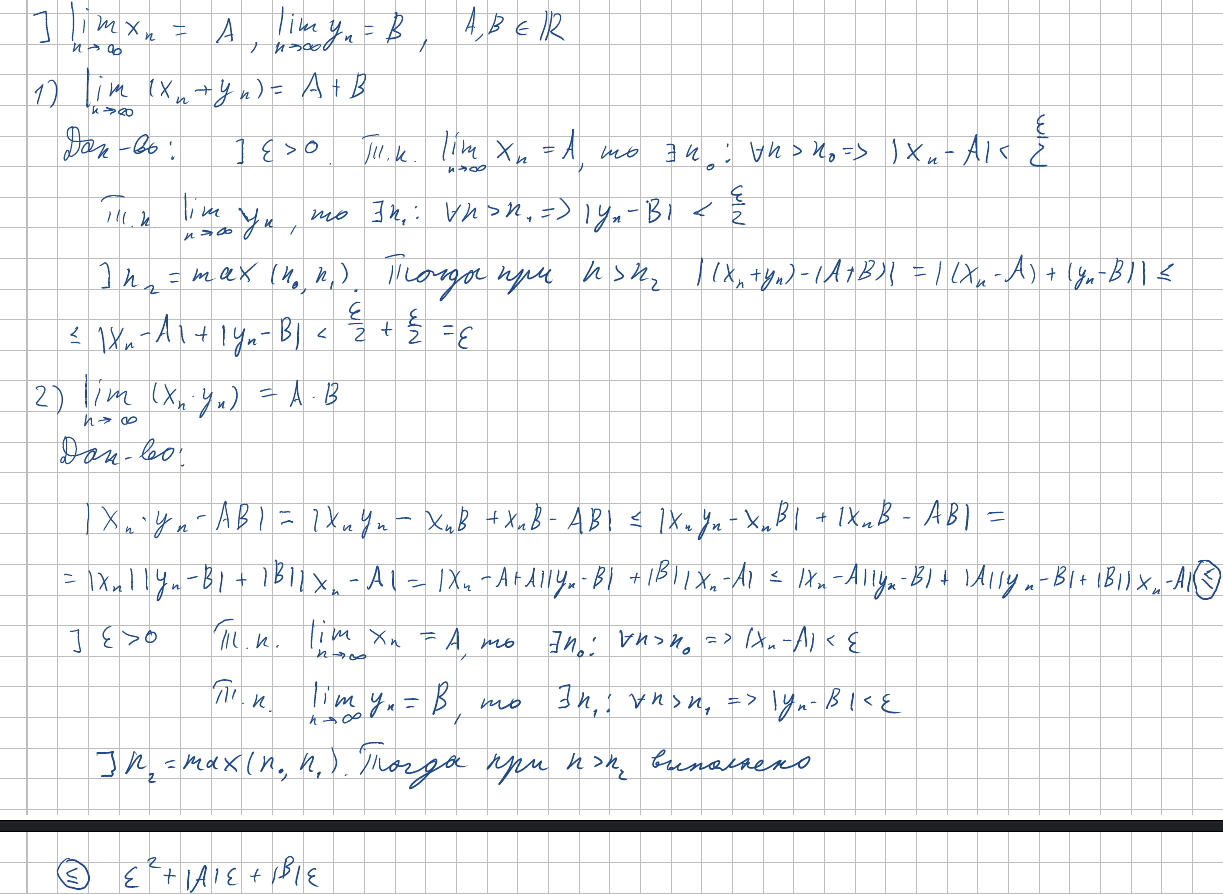 ] lim_{n→∞} x_n = A, lim_{n→∞} y_n = B, A,B ∈ ℝ
1) lim_{n→∞} (x_n + y_n) = A + B
Док-во: ] ε > 0. Т.к. lim_{n→∞} x_n = A, то ∃n_0: ∀n > n_0 => |x_n - A| < ε/2
Т.к lim_{n→∞} y_n, то ∃n_1: ∀n > n_1 => |y_n - B| < ε/2
] n_2 = max (n_0, n_1). Тогда при n > n_2 |(x_n + y_n) - (A + B)| = |(x_n - A) + (y_n - B)| ≤
≤ |x_n - A| + |y_n - B| < ε/2 + ε/2 = ε
2) lim_{n→∞} (x_n · y_n) = A · B
Док-во:
|x_n · y_n - AB| = |x_n y_n - x_n B + x_n B - AB| ≤ |x_n y_n - x_n B| + |x_n B - AB| =
= |x_n||y_n - B| + |B||x_n - A| = |x_n - A + A||y_n - B| + |B||x_n - A| ≤ |x_n - A||y_n - B| + |A||y_n - B| + |B||x_n - A| ≤
] ε > 0 Т.к. lim_{n→∞} x_n = A, то ∃n_0: ∀n > n_0 => |x_n - A| < ε
Т.к. lim_{n→∞} y_n = B, то ∃n_1: ∀n > n_1 => |y_n - B| < ε
] n_2 = max(n_0, n_1). Тогда при n > n_2 выполнено
≤ ε^2 + |A|ε + |B|ε